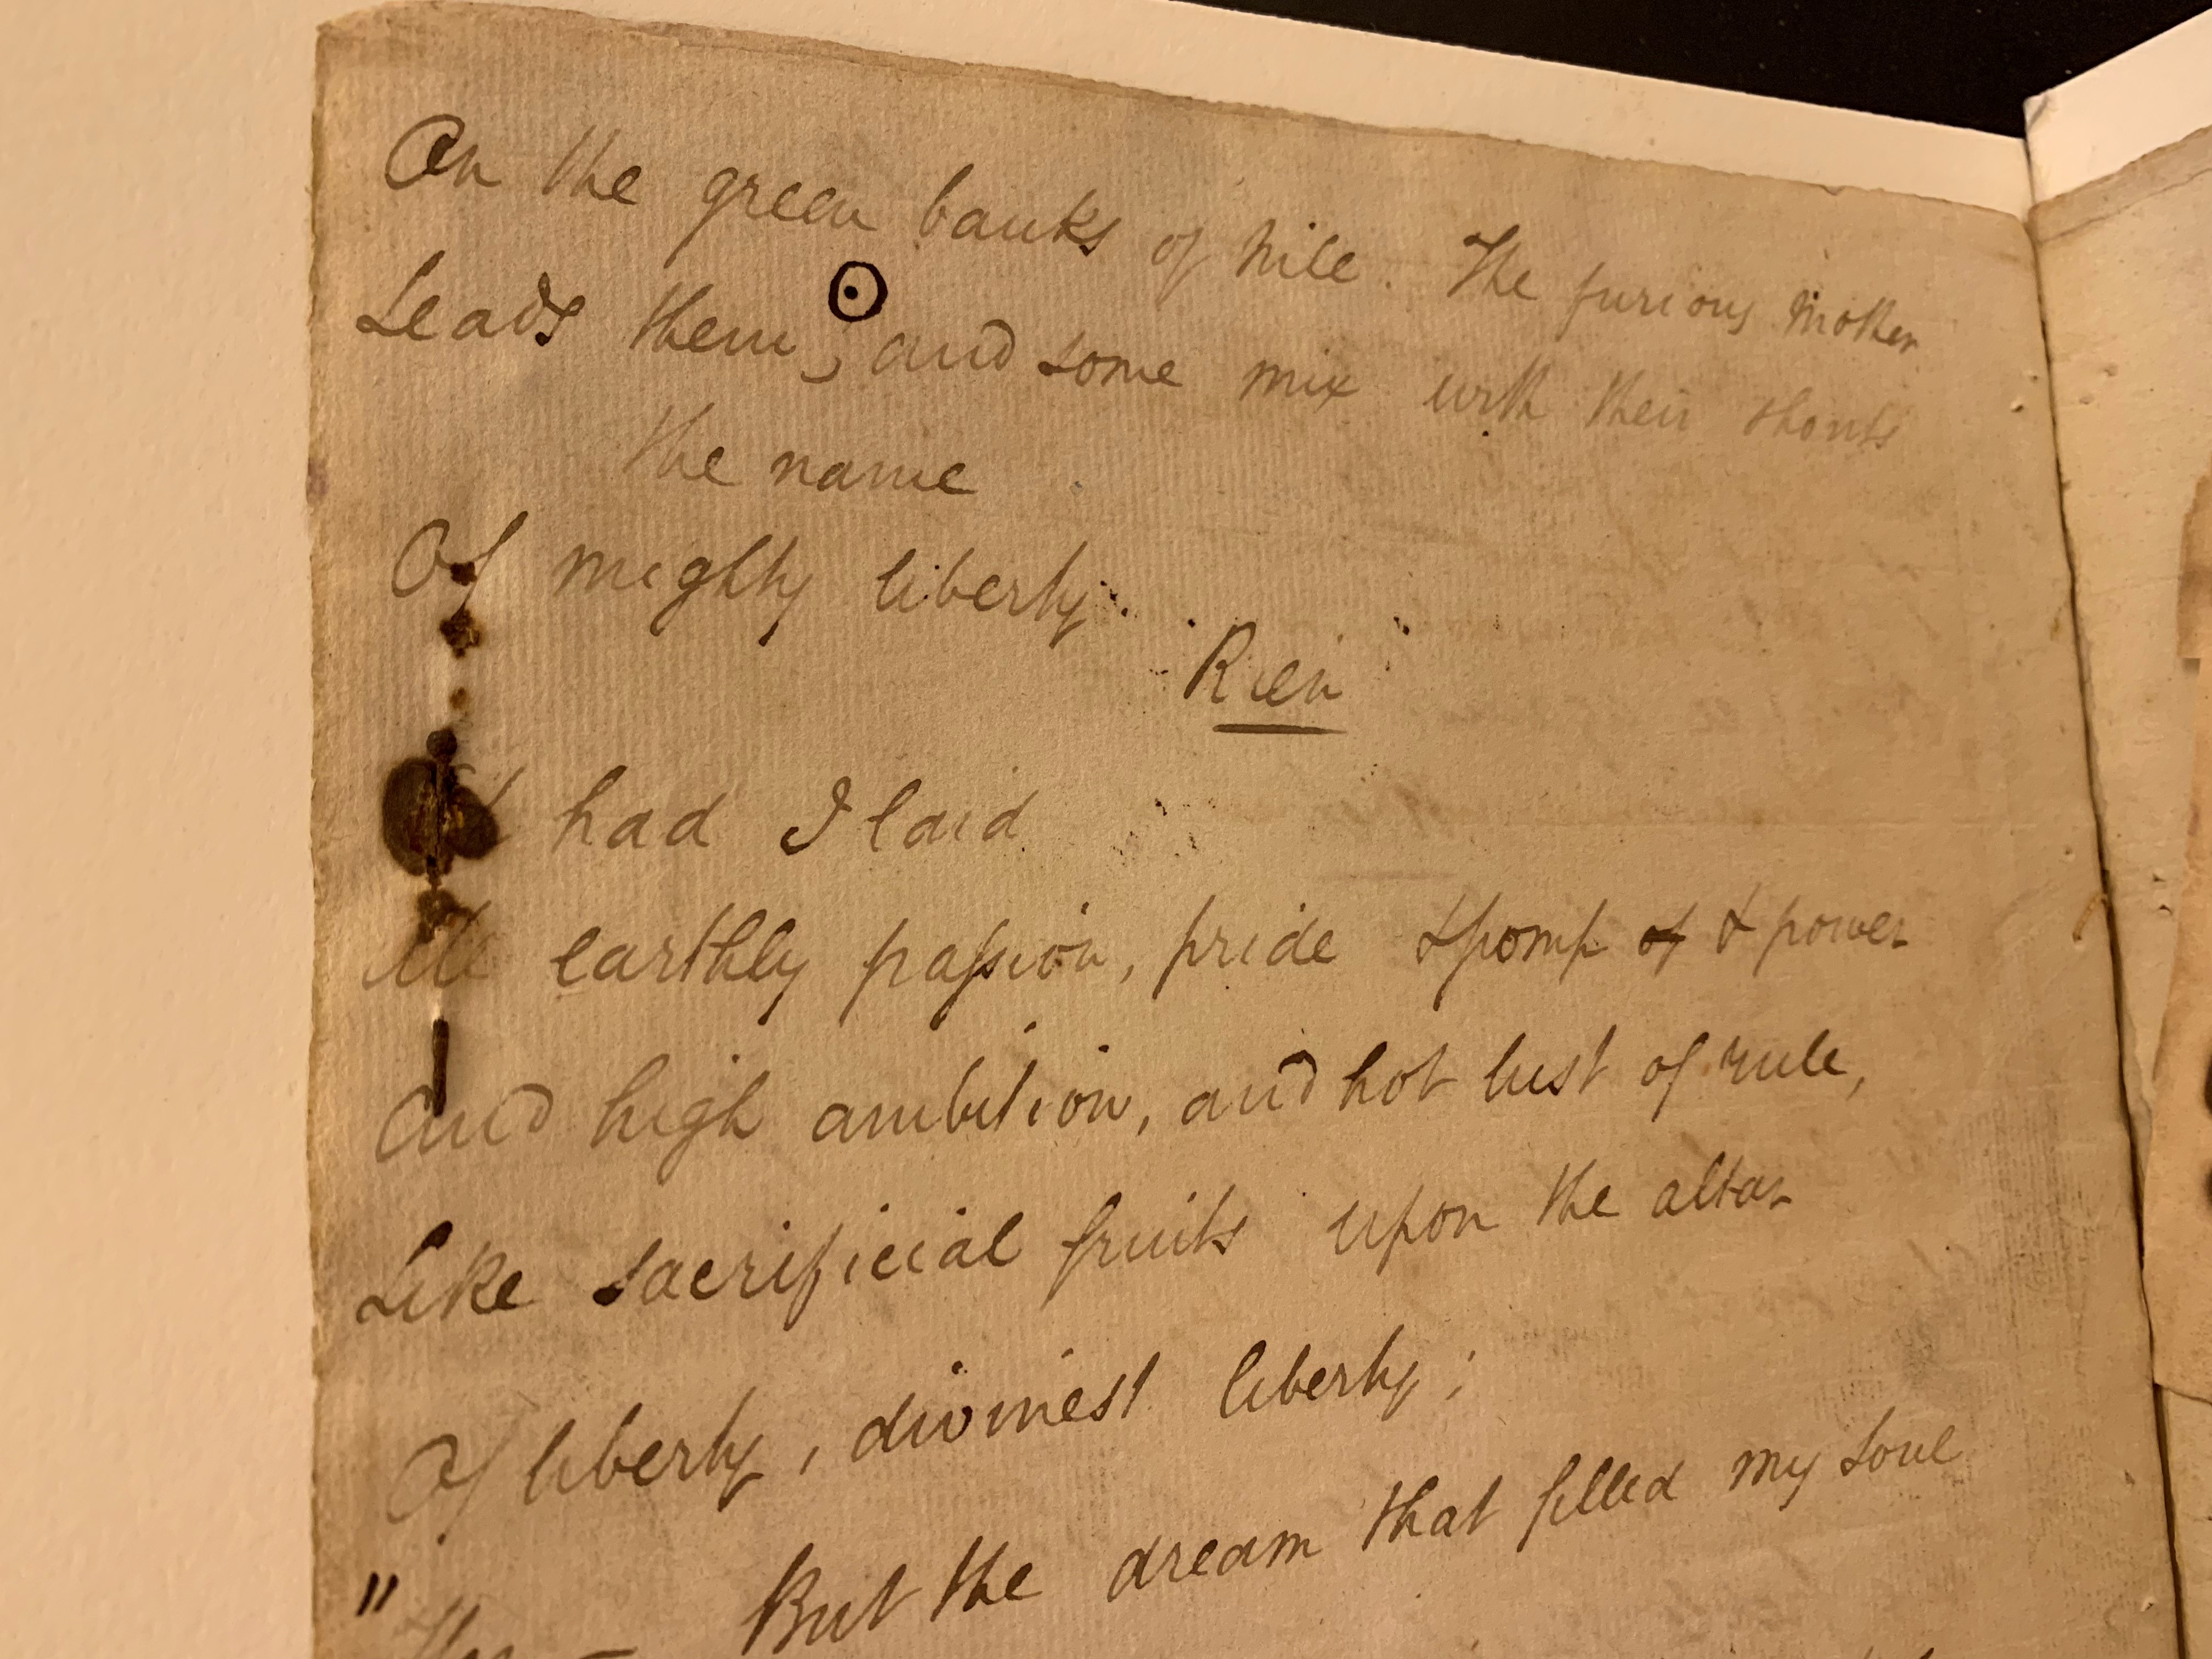 On the green banks of Nile. The furious Mother
Leads them; and some mix with their shouts
the name
Of mighty liberty.
Rien
had I laid
All earthly passion, pride & pomp of & power
And high ambition, and hot lust of rule,
Like sacrificial fruits upon the altar
Of liberty, divinest liberty;
" — But the dream that filled my soul